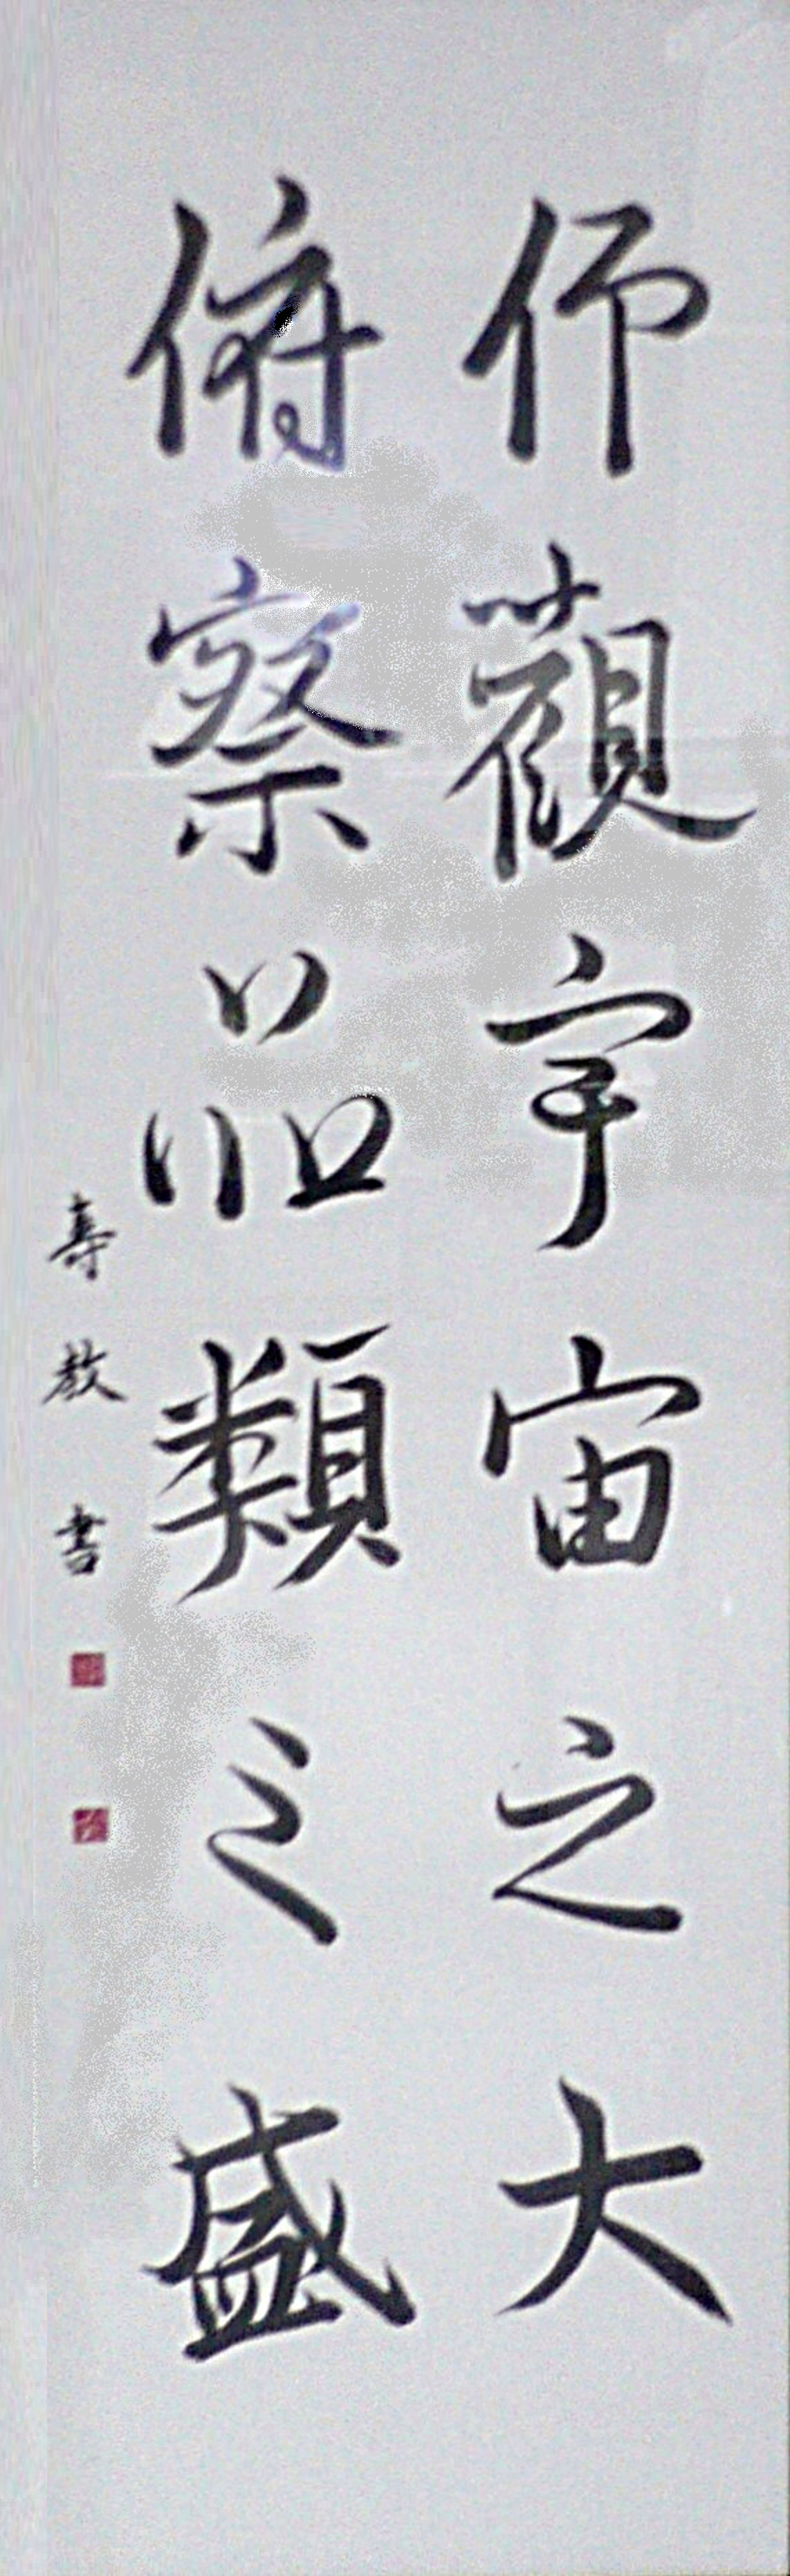 仰觀宇宙之大
俯察品類之盛
壽教書